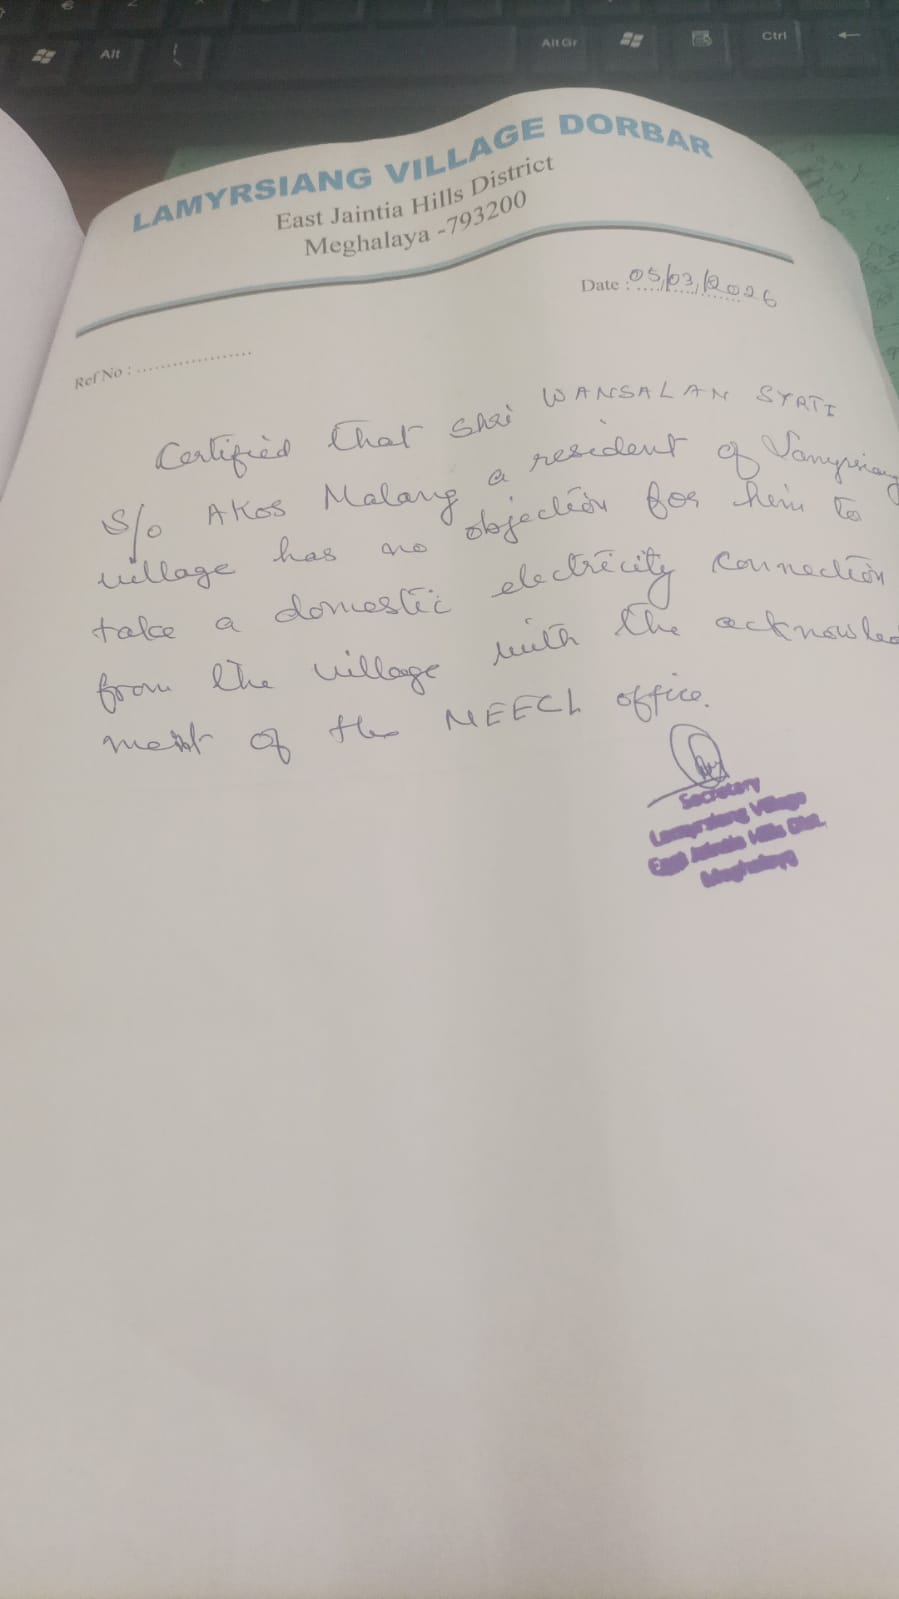 Alt
Alt Gr
Ctrl
LAMYRSIANG VILLAGE DORBAR
East Jaintia Hills District
Meghalaya -793200
Date : 05/03/2026
Ref No : ....................
Certified that Shri WANSALAN SYRTI
S/o AKOS Malang a resident of Lamyrsiang
village has no objection for him to
take a domestic electricity connection
from the village with the acknowled
ment of the MEECL office.
Secretary
Lamyrsiang Village
East Jaintia Hills Dist.
Meghalaya